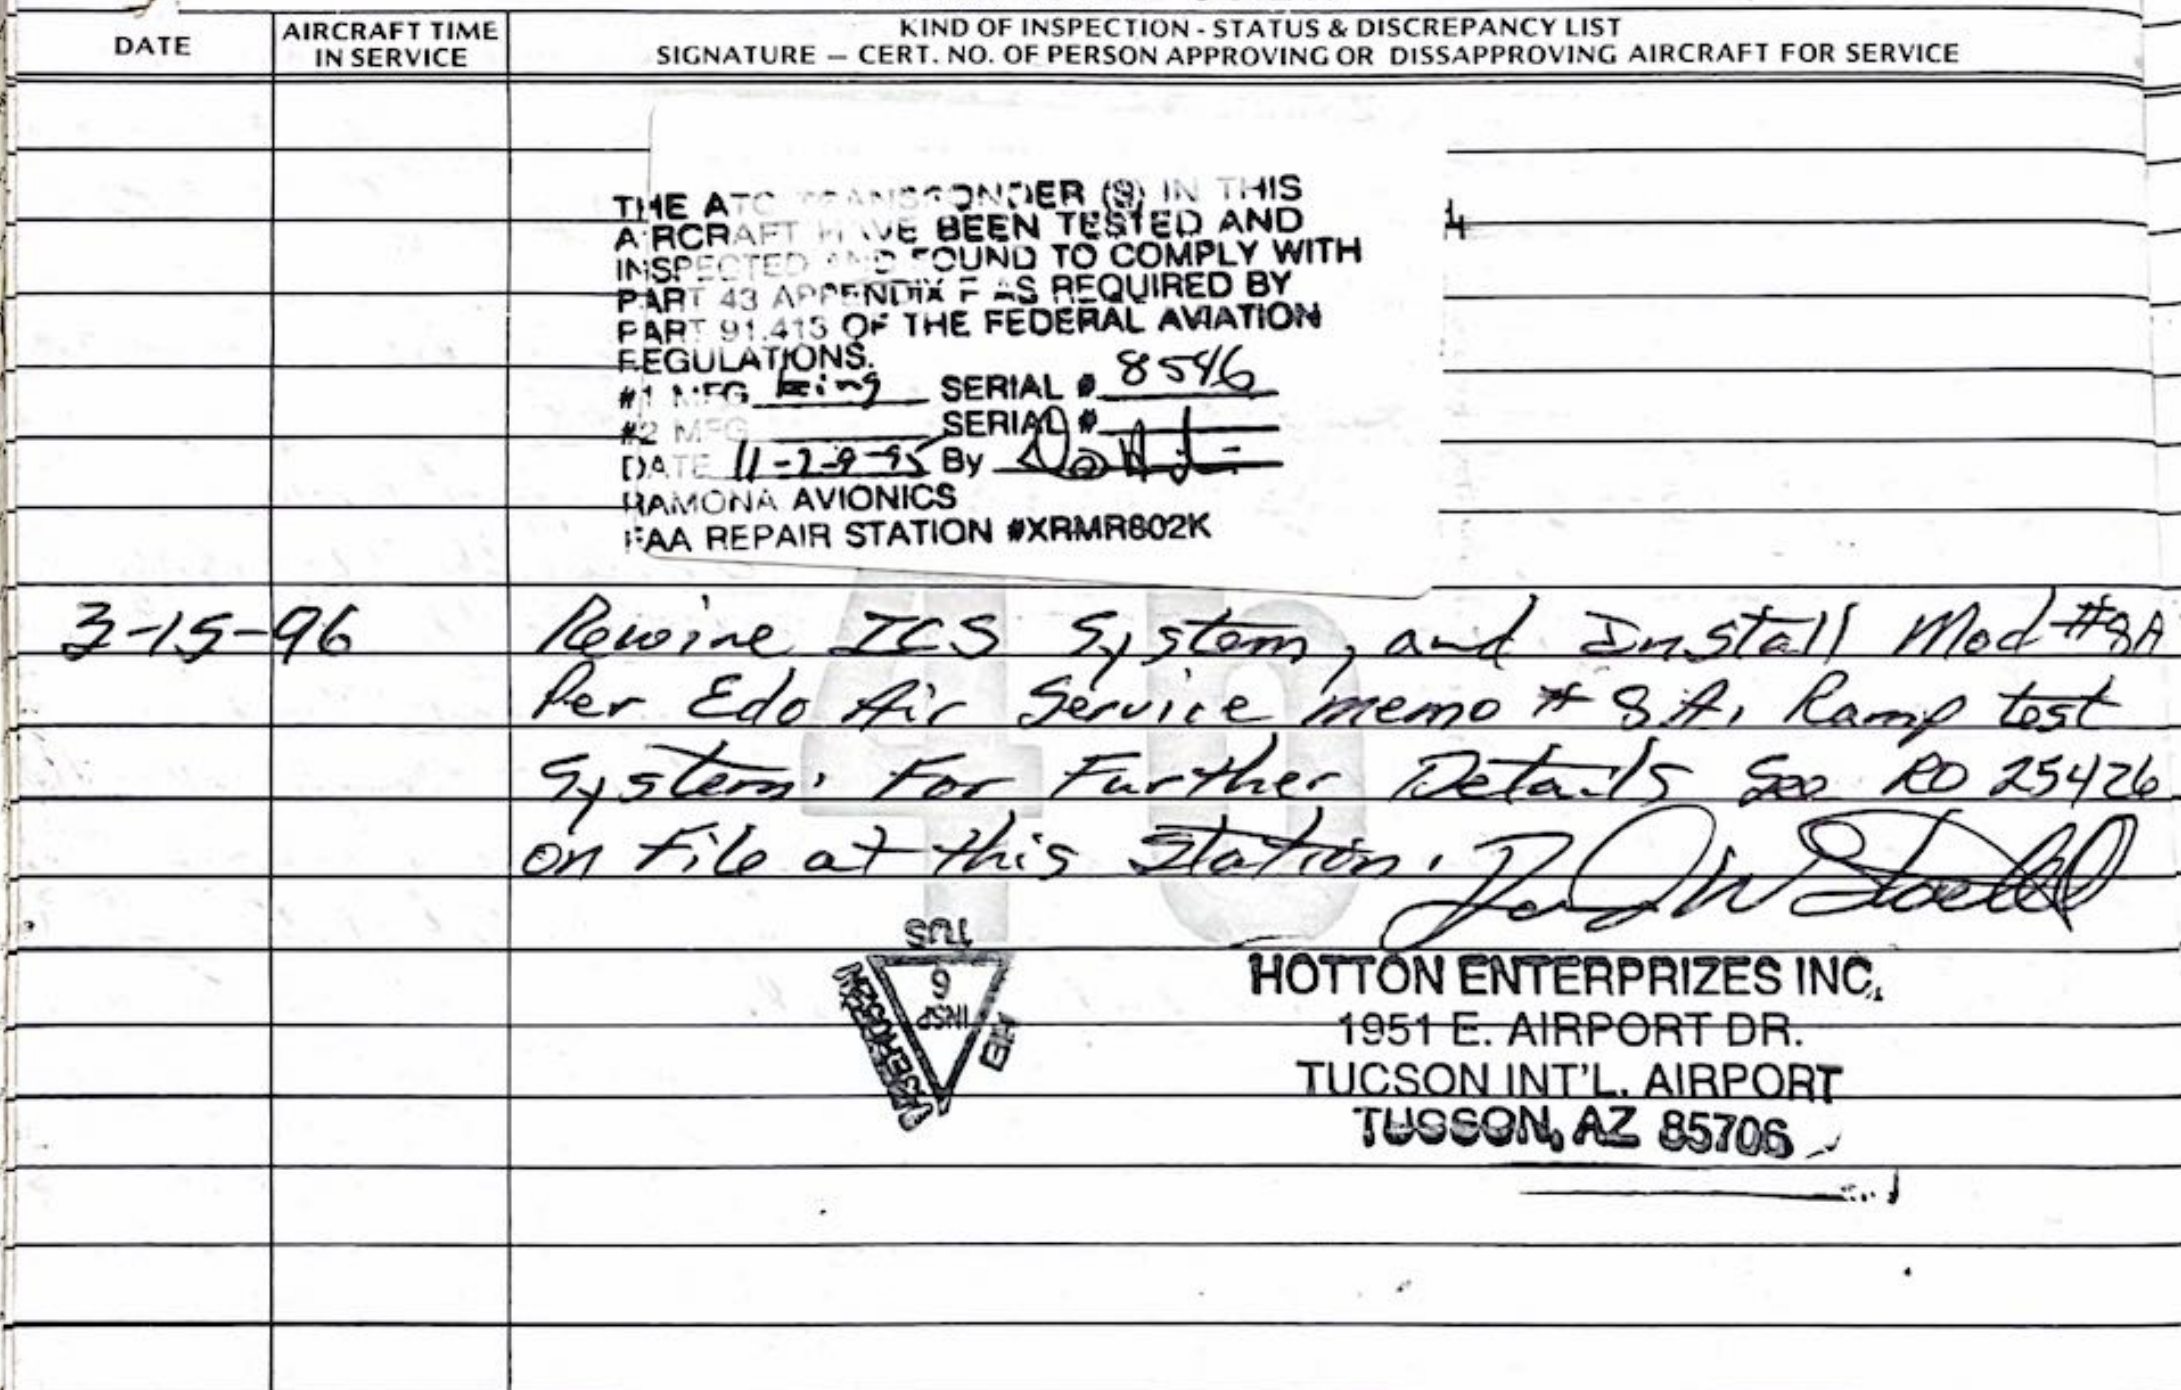 DATE
AIRCRAFT TIME
IN SERVICE
KIND OF INSPECTION - STATUS & DISCREPANCY LIST
SIGNATURE — CERT. NO. OF PERSON APPROVING OR DISSAPPROVING AIRCRAFT FOR SERVICE
THE ATC TRANSPONDER (S) IN THIS
AIRCRAFT HAVE BEEN TESTED AND
INSPECTED AND FOUND TO COMPLY WITH
PART 43 APPENDIX F AS REQUIRED BY
PART 91.413 OF THE FEDERAL AVIATION
REGULATIONS.
#1 MFG King SERIAL # 8546
#2 MFG SERIAL #
DATE 11-29-95 By
RAMONA AVIONICS
FAA REPAIR STATION #XRMR802K
3-15-96 Rewire ICS System, and Install Mod #8A
Per Edo Air Service memo # 8A. Ramp test
System. For Further Details See RO 25426
on File at this Station.
40
TUS
6
INSP
HOTTON ENTERPRIZES INC.
1951 E. AIRPORT DR.
TUCSON INT'L. AIRPORT
TUSSON, AZ 85706